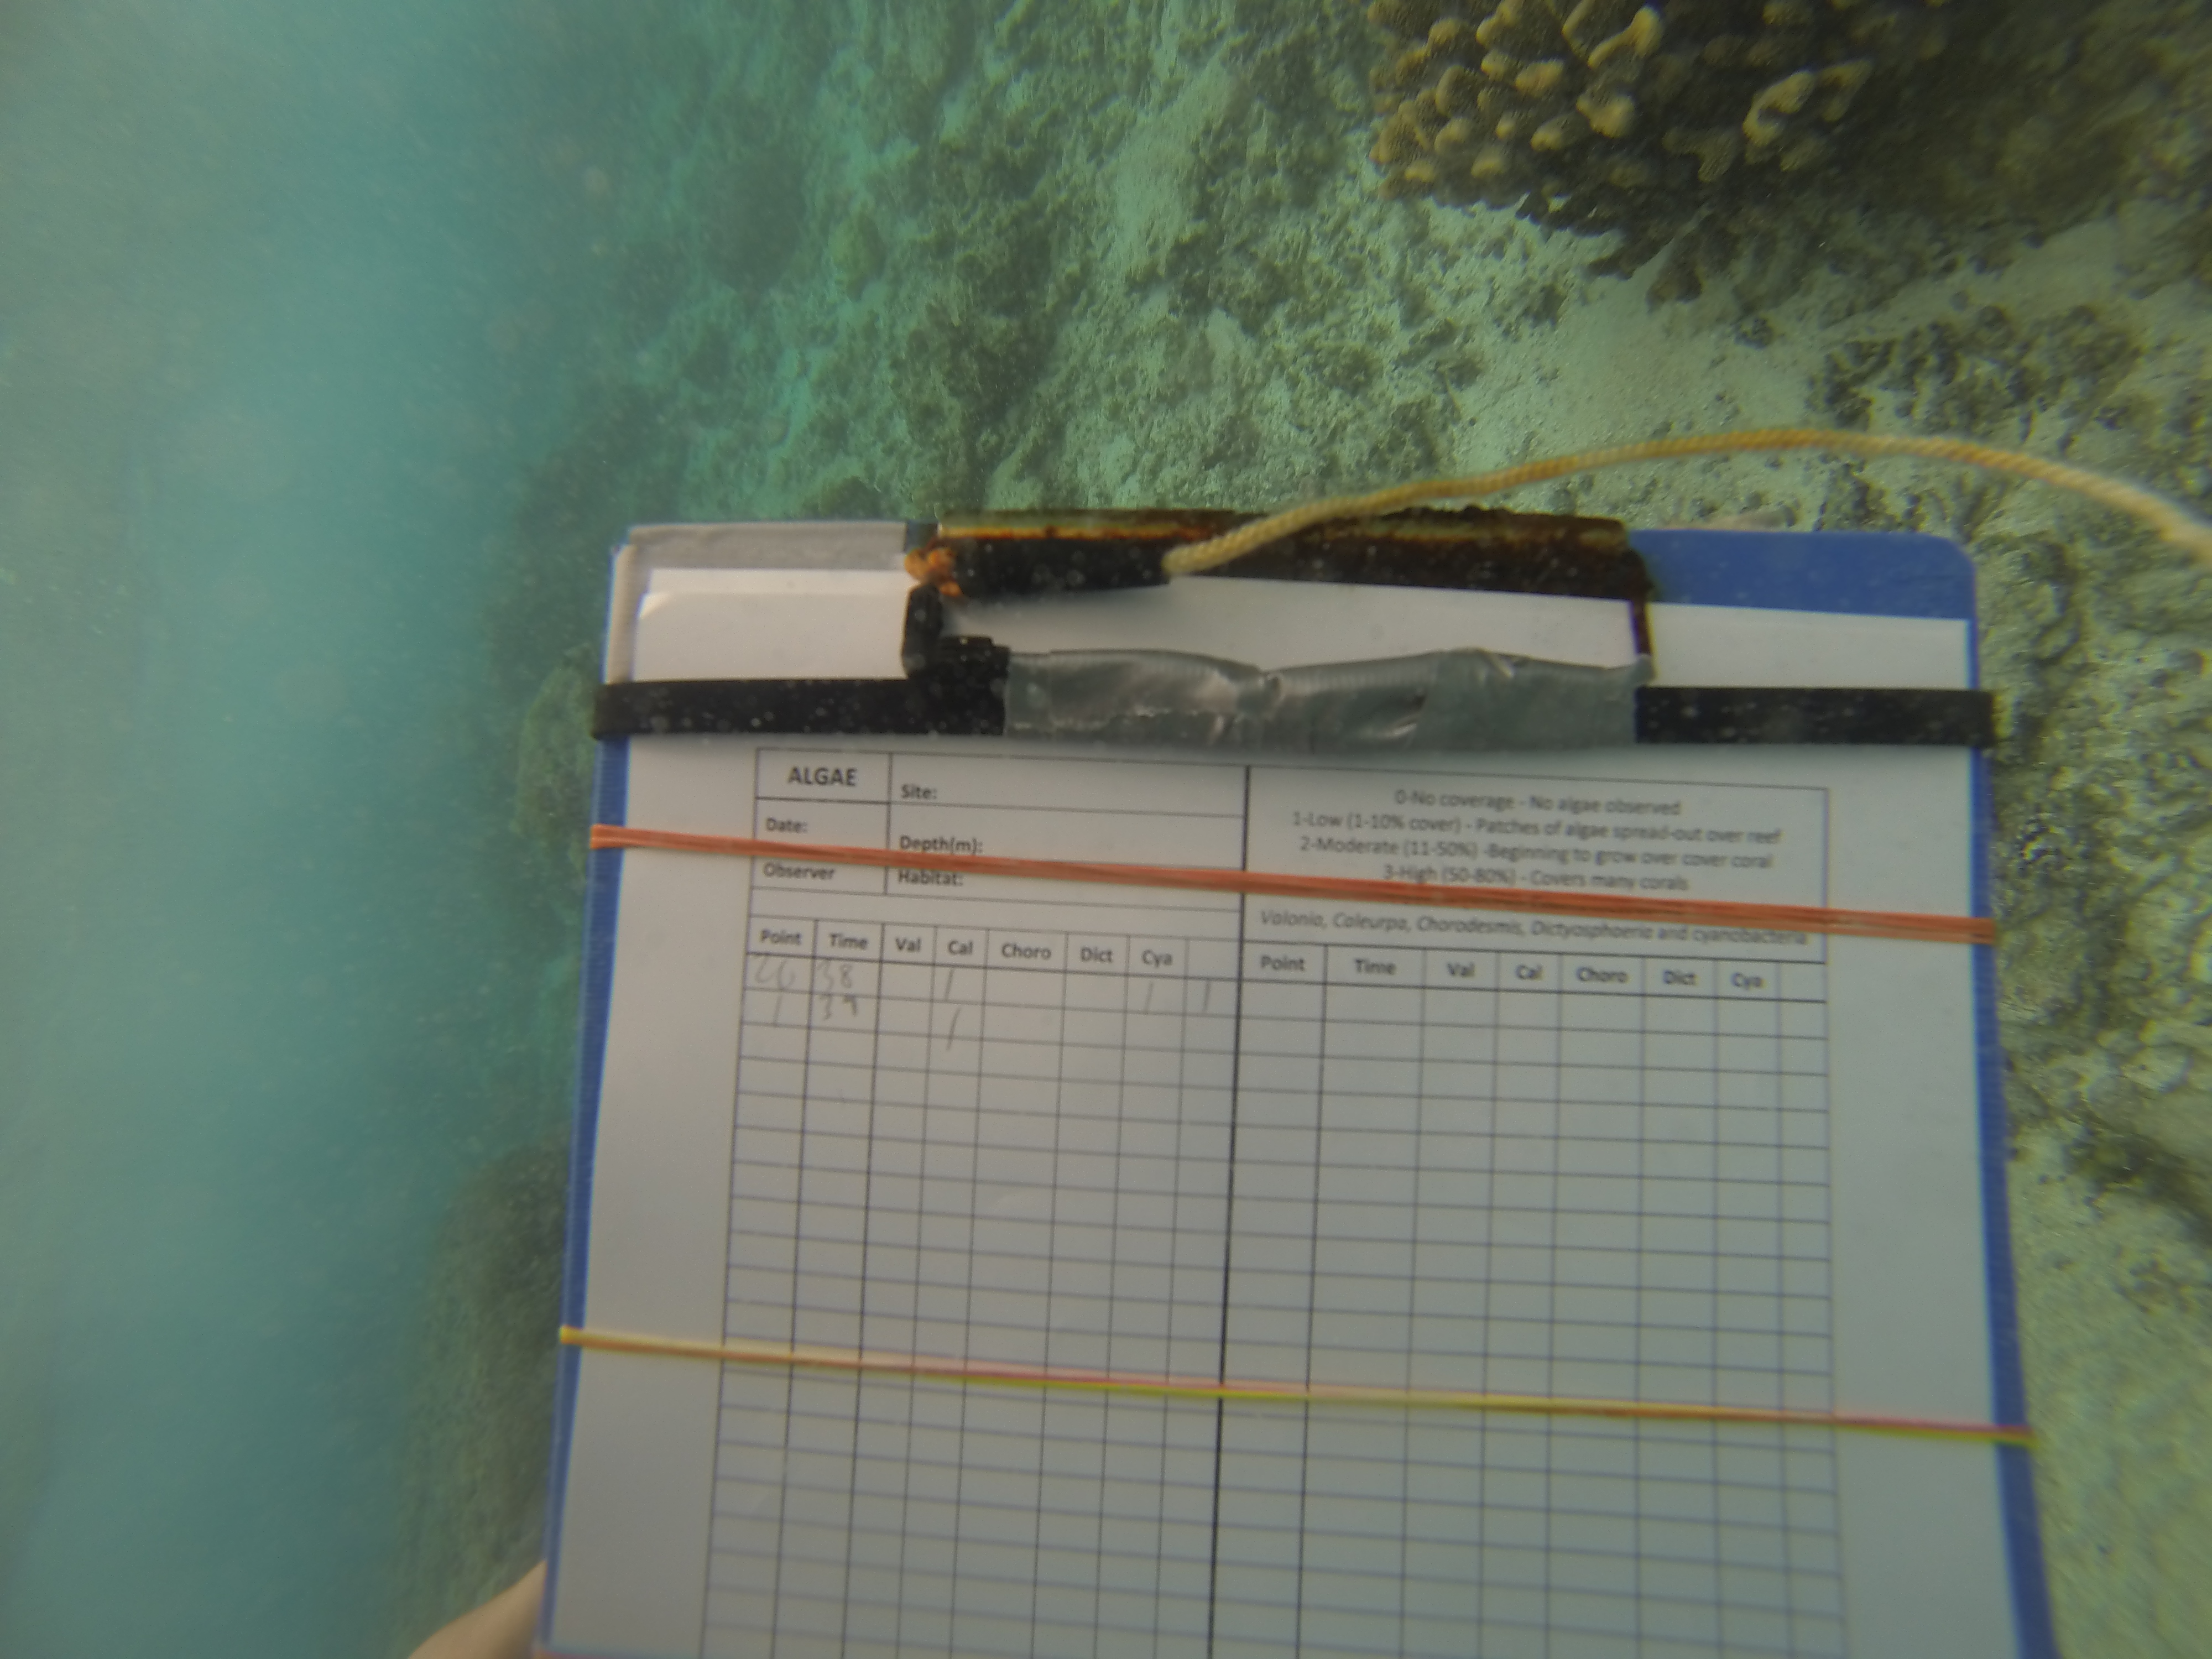 ALGAE
Site:
Date:
Depth(m):
Observer
Habitat:
0-No coverage - No algae observed
1-Low (1-10% cover) - Patches of algae spread-out over reef
2-Moderate (11-50%) -Beginning to grow over cover coral
3-High (50-80%) - Covers many corals
Valonia, Caleurpa, Chorodesmis, Dictyosphaeria and cyanobacteria
Point Time Val Cal Choro Dict Cya Point Time Val Cal Choro Dict Cya
26 38 1 1 1
1 39 1